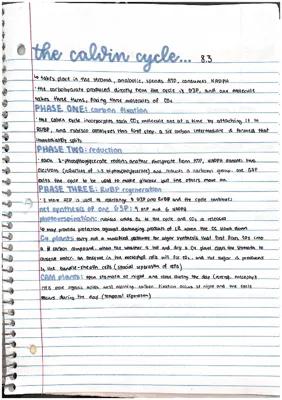 the calvin cycle... 8.3
↳ takes place in the stroma, anabolic, spends ATP, consumes NADPH
· the carbohydrate produced directly from the cycle is G3P, and one molecule
takes three turns, fixing three molecules of CO₂
PHASE ONE: carbon fixation
· the calvin cycle incorporates each CO₂ molecule one at a time by attaching it to
RuBP, and rubisco catalyzes this first step. a six carbon intermediate is formed that
immediately splits
PHASE TWO: reduction
· each 3-phosphoglycerate obtains another phosphate from ATP, NADPH donates two
electrons (reduction of 1,3 bisphosphoglycerate) and a carbon group. one G3P
exits the cycle to be used to make glucose and the others move on
PHASE THREE: RuBP regeneration
· 3 more ATP is used to rearrange 5 G3P and RuBP and the cycle continues
net synthesis of one G3P: 9 ATP and 6 NADPH
photorespiration: rubisco adds O₂ to the cycle and CO₂ is released
↳ may provide protection against damaging products of LR when the CC slows down
C4 plants: carry out a modified pathway for sugar synthesis that first fixes CO₂ into
a 4 carbon compound. when the weather is hot and dry a C4 plant closes the stomata to
conserve water. an enzyme in the mesophyll cells will fix CO₂, and the sugar is produced
in the bundle-sheath cells (spatial separation of steps)
CAM plants: open stomata at night and close during the day (reverse,
make organic acids until morning. carbon fixation occurs at night and the cycle
occurs during the day (temporal separation)